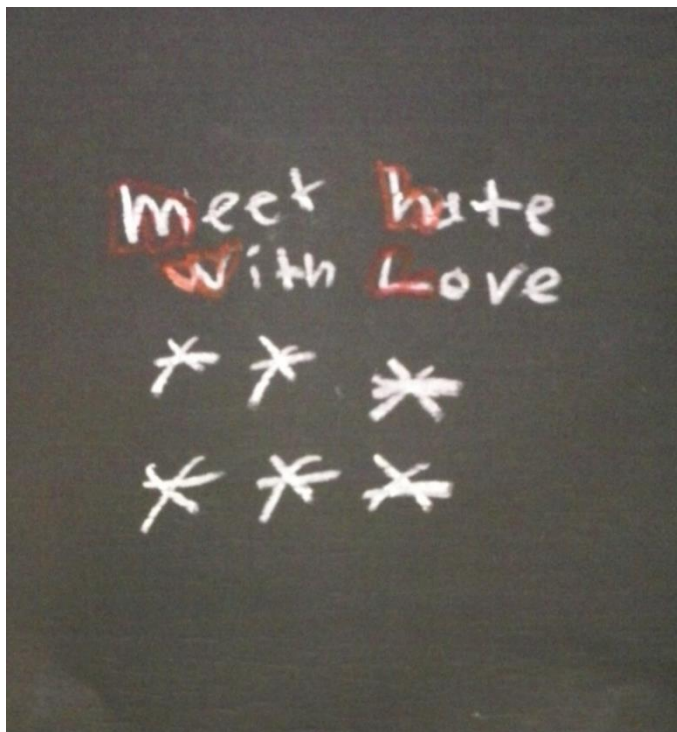 meet hate
with Love
* * *
* * *